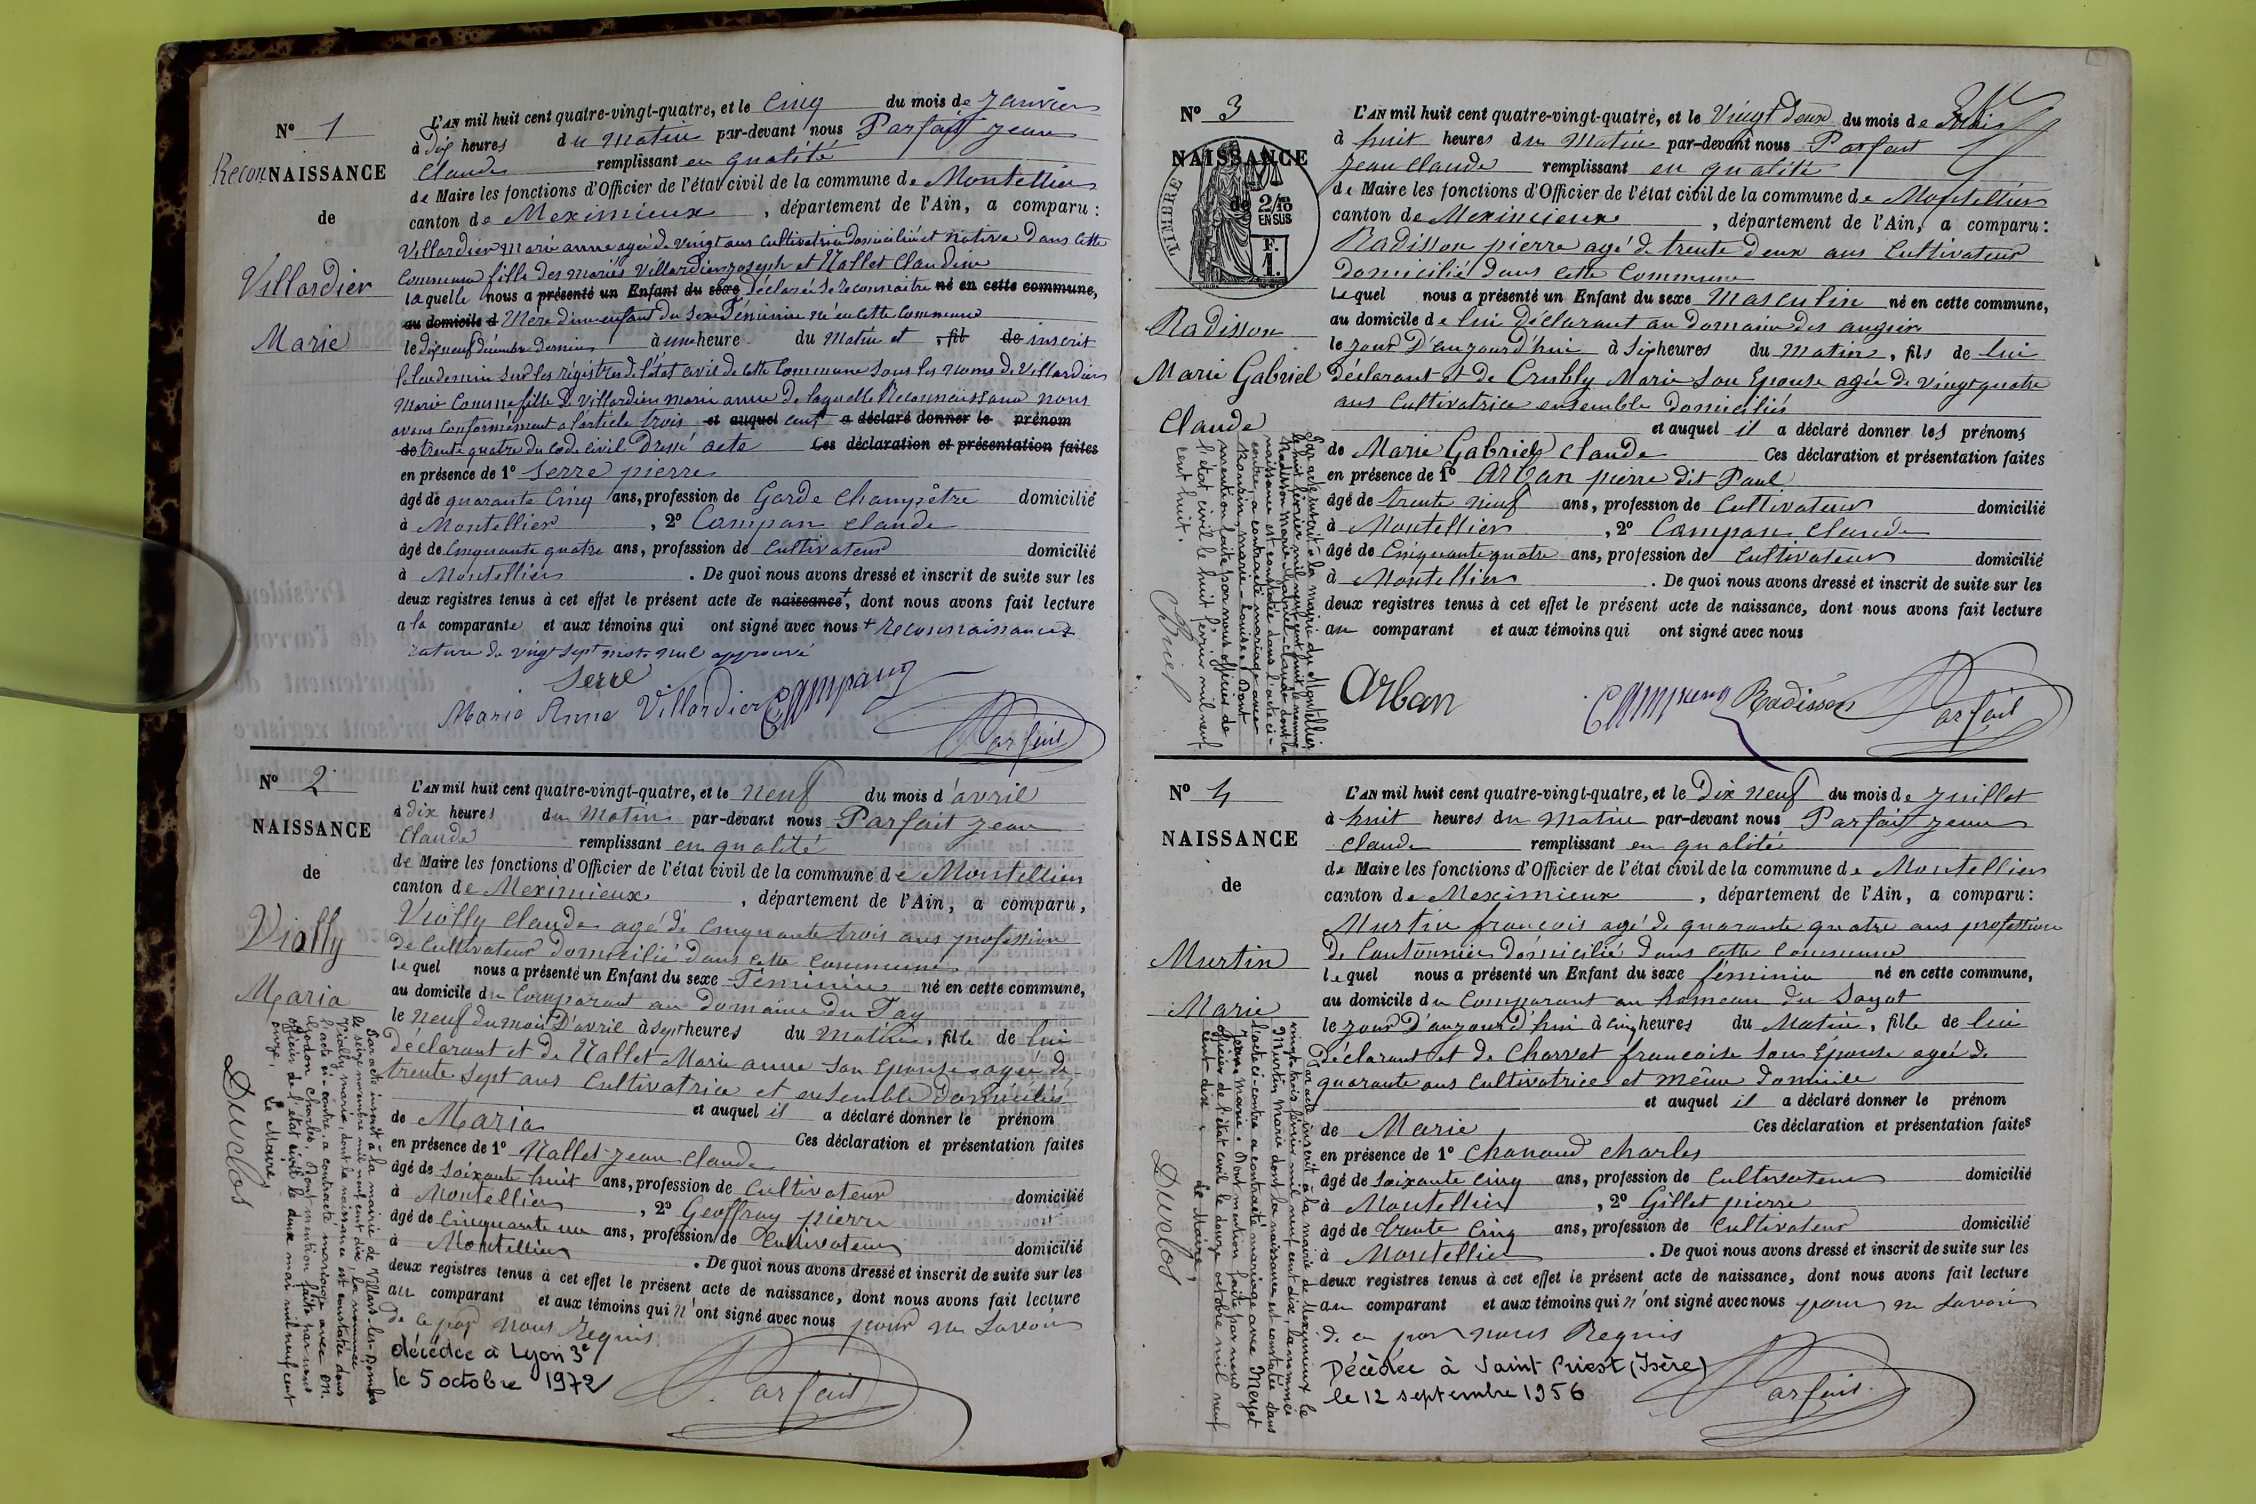 N° 1
ReconNAISSANCE
de
Villardier
Marie
L'AN mil huit cent quatre-vingt-quatre, et le Cinq du mois de Janvier
à dix heures du matin par-devant nous Parfait jean
Claude remplissant en qualité
de Maire les fonctions d'Officier de l'état civil de la commune de Montellier
canton de Meximieux, département de l'Ain, a comparu :
Villardier Marie anne agée de vingt ans Cultivatrice domiciliée et native Dans cette
Commune fille des mariés Villardier joseph et Nallet Claudine
laquelle nous a présenté un Enfant du sexe Déclarée Se reconnaitre né en cette commune,
au domicile d Mère d'un enfant du Sexe Féminin né en cette Commune
le dix neuf décembre dernier à une heure du Matin et , fil de inscrit
le lendemain sur les régistres de l'état civil de cette Commune sous les noms de Villardier
Marie Comme fille de Villardier marie anne De laquelle Reconnaissance nous
avons Conformément a l'article trois et auquel cent a déclaré donner le prénom
de trente quatre du Code civil Dressé acte Ces déclaration et présentation faites
en présence de 1° Serre pierre
âgé de quarante Cinq ans, profession de Garde Champêtre domicilié
à Montellier, 2° Campan Claude
âgé de Cinquante quatre ans, profession de Cultivateur domicilié
à Montellier. De quoi nous avons dressé et inscrit de suite sur les
deux registres tenus à cet effet le présent acte de naissance+, dont nous avons fait lecture
a la comparante et aux témoins qui ont signé avec nous + reconnaissance+
rature de vingt sept mots nul approuvé
Serre
Marie Anne Villardier Campang
Parfait
N° 2
NAISSANCE
de
Vially
Maria
L'AN mil huit cent quatre-vingt-quatre, et le neuf du mois d'avril
à dix heures du Matin par-devant nous Parfait jean
Claude remplissant en qualité
de Maire les fonctions d'Officier de l'état civil de la commune de Montellier
canton de Meximieux, département de l'Ain, a comparu,
Vially Claude agé de Cinquante trois ans profession
de Cultivateur Domicilié dans cette Commune
lequel nous a présenté un Enfant du sexe Féminin né en cette commune,
au domicile du Comparant au Domaine du Fay
le neuf du mois D'avril à sept heures du matin, fille de lui
déclarant et de Nallet Marie anne son Epouse agée de
trente sept ans Cultivatrice et ensemble Domiciliés
et auquel il a déclaré donner le prénom
de Maria Ces déclaration et présentation faites
en présence de 1° Nallet jean Claude
âgé de soixante huit ans, profession de Cultivateur domicilié
à Montellier, 2° Geoffray pierre
âgé de Cinquante un ans, profession de Cultivateur domicilié
à Montellier. De quoi nous avons dressé et inscrit de suite sur les
deux registres tenus à cet effet le présent acte de naissance, dont nous avons fait lecture
au comparant et aux témoins qui n'ont signé avec nous pour ne savoir
de ce par nous Requis
décédée à Lyon 3e
le 5 octobre 1972
Parfait
Par acte inscrit à la mairie de Villars-les-Dombes
le seize novembre mil neuf cent dix, la nommée
Vially maria, dont la naissance est constatée dans
l'acte ci-contre, a contracté mariage avec M.
Clodon Charles. Dont mention faite par nous
officier de l'état civil le deux mai mil neuf cent
onze. Le Maire,
Duclos
N° 3
NAISSANCE
de
TIMBRE
2/10
EN SUS
F.
1.
Radisson
Marie Gabriel
Claude
L'AN mil huit cent quatre-vingt-quatre, et le Vingt deux du mois de
à huit heures du Matin par-devant nous Parfait
jean Claude remplissant en qualité
de Maire les fonctions d'Officier de l'état civil de la commune de Montellier
canton de Meximieux, département de l'Ain, a comparu :
Radisson pierre agé de trente deux ans Cultivateur
domicilié dans cette Commune
lequel nous a présenté un Enfant du sexe Masculin né en cette commune,
au domicile de lui Déclarant au Domaine des
le jour D'aujourd'hui à six heures du Matin, fils de lui
déclarant et de Marie Son Epouse agée de Vingt quatre
ans Cultivatrice ensemble Domiciliés
et auquel il a déclaré donner les prénoms
de Marie Gabriel Claude Ces déclaration et présentation faites
en présence de 1° Arban pierre dit Paul
âgé de trente neuf ans, profession de Cultivateur domicilié
à Montellier, 2° Campan Claude
âgé de Cinquante quatre ans, profession de Cultivateur domicilié
à Montellier. De quoi nous avons dressé et inscrit de suite sur les
deux registres tenus à cet effet le présent acte de naissance, dont nous avons fait lecture
au comparant et aux témoins qui ont signé avec nous
Arban Campang Radisson Parfait
Par acte inscrit à la mairie du Montellier
le huit février mil neuf cent huit, le nommé
Radisson Marie-Gabriel-Claude dont la
naissance est constatée dans l'acte ci-
contre, a contracté mariage avec
Marie-Louise. Dont
mention faite par nous officier de
l'état civil le huit février mil neuf
cent huit.
N° 4
NAISSANCE
de
Murtin
Marie
L'AN mil huit cent quatre-vingt-quatre, et le Dix neuf du mois de juillet
à huit heures du Matin par-devant nous Parfait jean
Claude remplissant en qualité
de Maire les fonctions d'Officier de l'état civil de la commune de Montellier
canton de Meximieux, département de l'Ain, a comparu :
Murtin françois agé de quarante quatre ans profession
de Cantonnier Domicilié dans cette Commune
lequel nous a présenté un Enfant du sexe féminin né en cette commune,
au domicile du Comparant au hameau du Sayot
le jour D'aujourd'hui à cinq heures du Matin, fille de lui
déclarant et de Charvet françoise son Epouse agée de
quarante ans Cultivatrice et même Domicile
et auquel il a déclaré donner le prénom
de Marie Ces déclaration et présentation faites
en présence de 1° Chanaud Charles
âgé de soixante cinq ans, profession de Cultivateur domicilié
à Montellier, 2° Gillet pierre
âgé de trente Cinq ans, profession de Cultivateur domicilié
à Montellier. De quoi nous avons dressé et inscrit de suite sur les
deux registres tenus à cet effet le présent acte de naissance, dont nous avons fait lecture
au comparant et aux témoins qui n'ont signé avec nous pour ne savoir
de ce par nous Requis
Décédée à Saint Priest (Isère)
le 12 septembre 1956
Parfait
Par acte inscrit à la mairie de Meximieux le
vingt-trois février mil neuf cent dix, la nommée
Murtin Marie dont la naissance est constatée dans
l'acte ci-contre a contracté mariage avec Merget
Marie. Dont mention faite par nous
officier de l'état civil le douze octobre mil neuf
cent dix. Le Maire,
Duclos